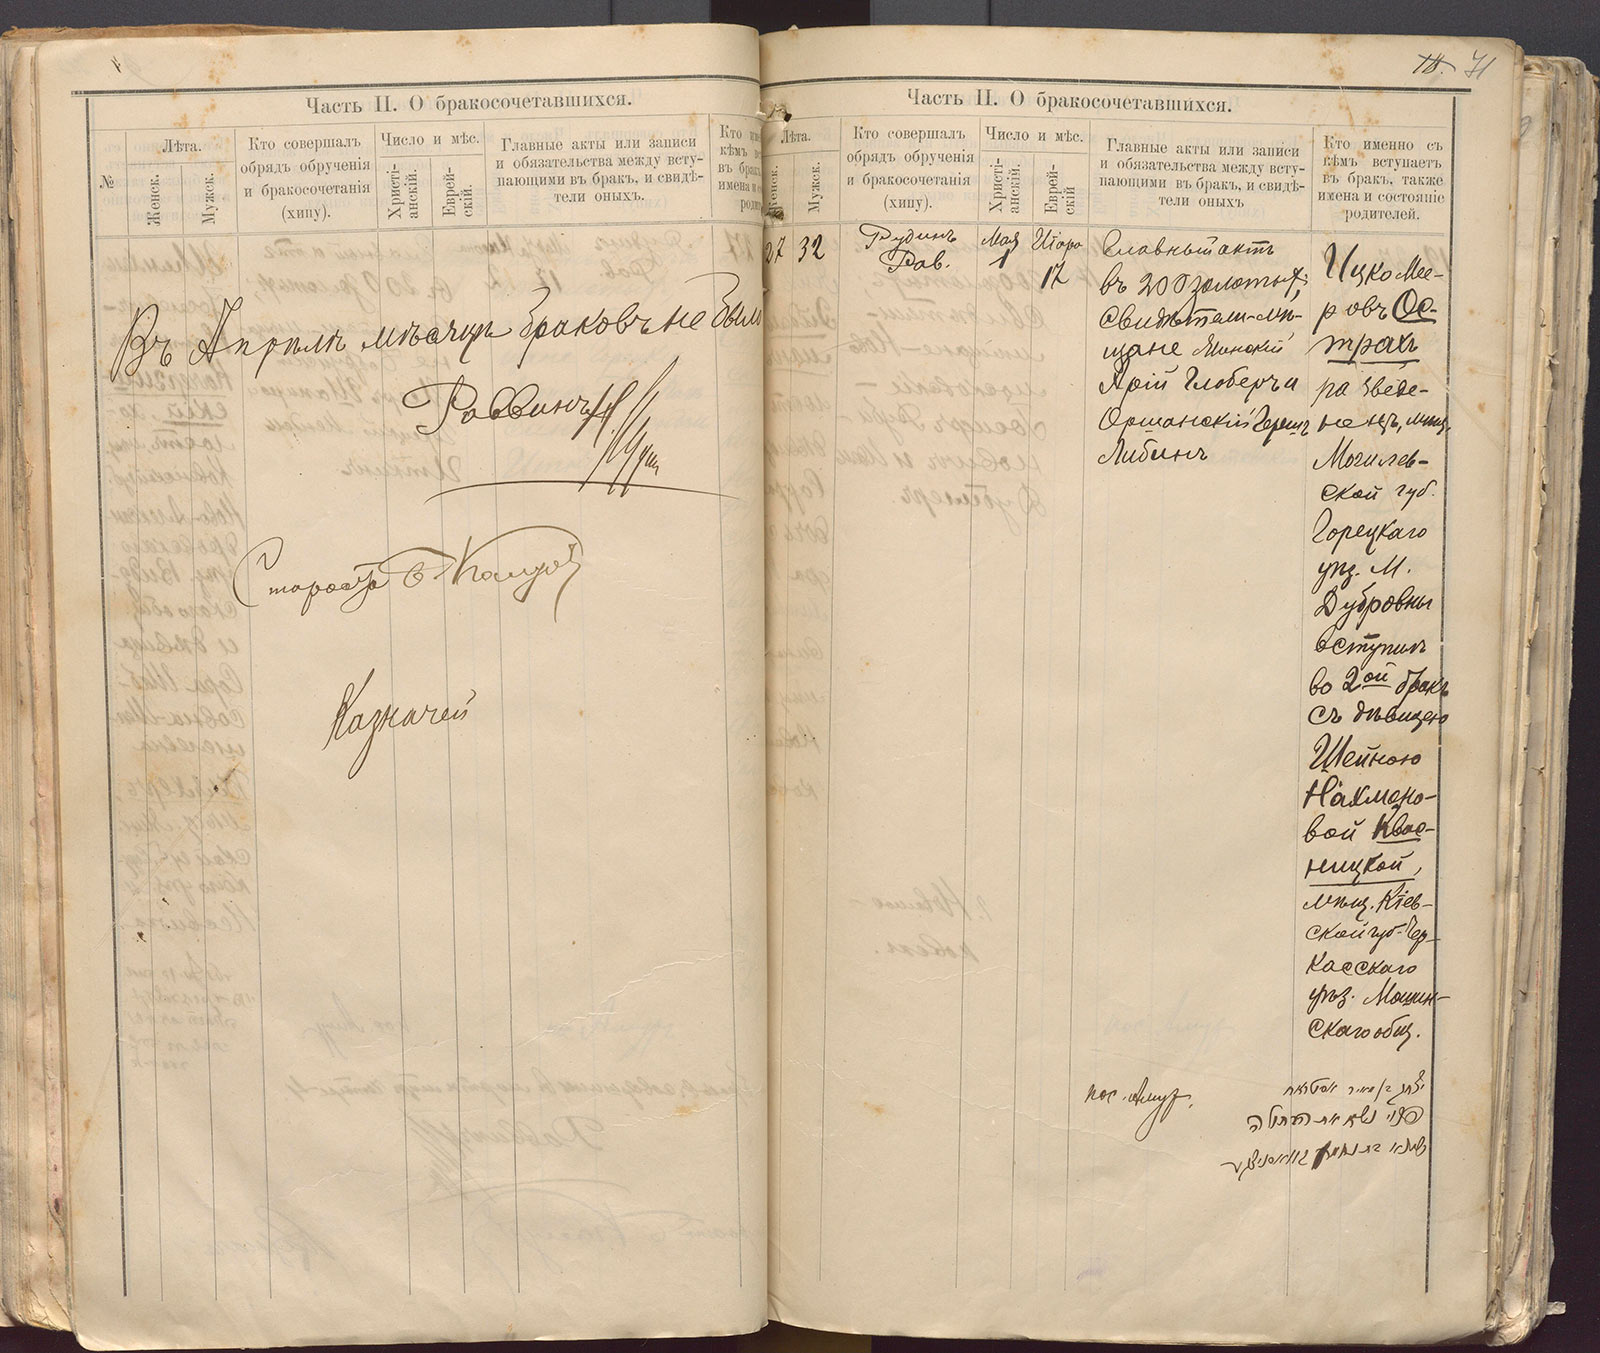 Часть II. О бракосочетавшихся.
№
Лѣта.
Женск.
Мужск.
Кто совершалъ
обрядъ обрученія
и бракосочетанія
(хипу).
Число и мѣс.
Христі-
анскій.
Еврей-
скій.
Главные акты или записи
и обязательства между всту-
пающими въ бракъ, и свидѣ-
тели оныхъ.
Въ Апрѣлѣ мѣсяцѣ браковъ не было
Раввинъ
Староста
Казначей
71
Часть II. О бракосочетавшихся.
Лѣта.
Женск.
Мужск.
Кто совершалъ
обрядъ обрученія
и бракосочетанія
(хипу).
Число и мѣс.
Христі-
анскій.
Еврей-
скій
Главные акты или записи
и обязательства между всту-
пающими въ бракъ, и свидѣ-
тели оныхъ
Кто именно съ
кѣмъ вступаетъ
въ бракъ, также
имена и состояніе
родителей.
27
32
Рудинъ
Рав.
Мая
1
Иіора
17
Главный актъ
въ 200 золотыхъ;
Свидѣтели-мѣ-
щане Минскій
Арій Глоберъ и
Оршанскій Гершъ
Либинъ
Ицко Мее-
ровъ Ос-
трахъ
разведе-
нецъ, мѣщ.
Могилев-
ской губ.
Горецкаго
уѣз. М.
Дубровны
вступилъ
во 2ой бракъ
съ дѣвицею
Шейною
Нахмано-
вой Квас-
ницкой,
мѣщ. Кіев-
ской губ. Чер-
касскаго
уѣз. Мошин-
скаго общ.
пос. Амур.